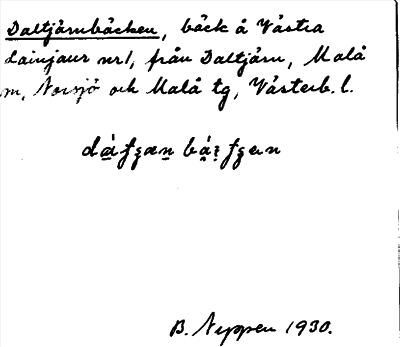 Daltjärnbäcken, bäck å Västra
Lainejaur nr1, från Daltjärn, Malå
m, Norsjö och Malå tg, Västerb. l.
B. Neppen 1930.